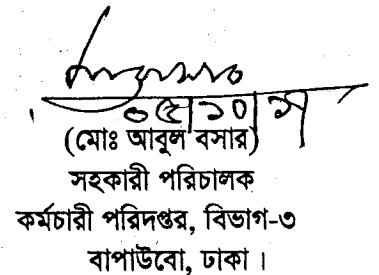 ০৫|১০|১৭
(মোঃ আবুল বসার)
সহকারী পরিচালক
কর্মচারী পরিদপ্তর, বিভাগ-৩
বাপাউবো, ঢাকা।